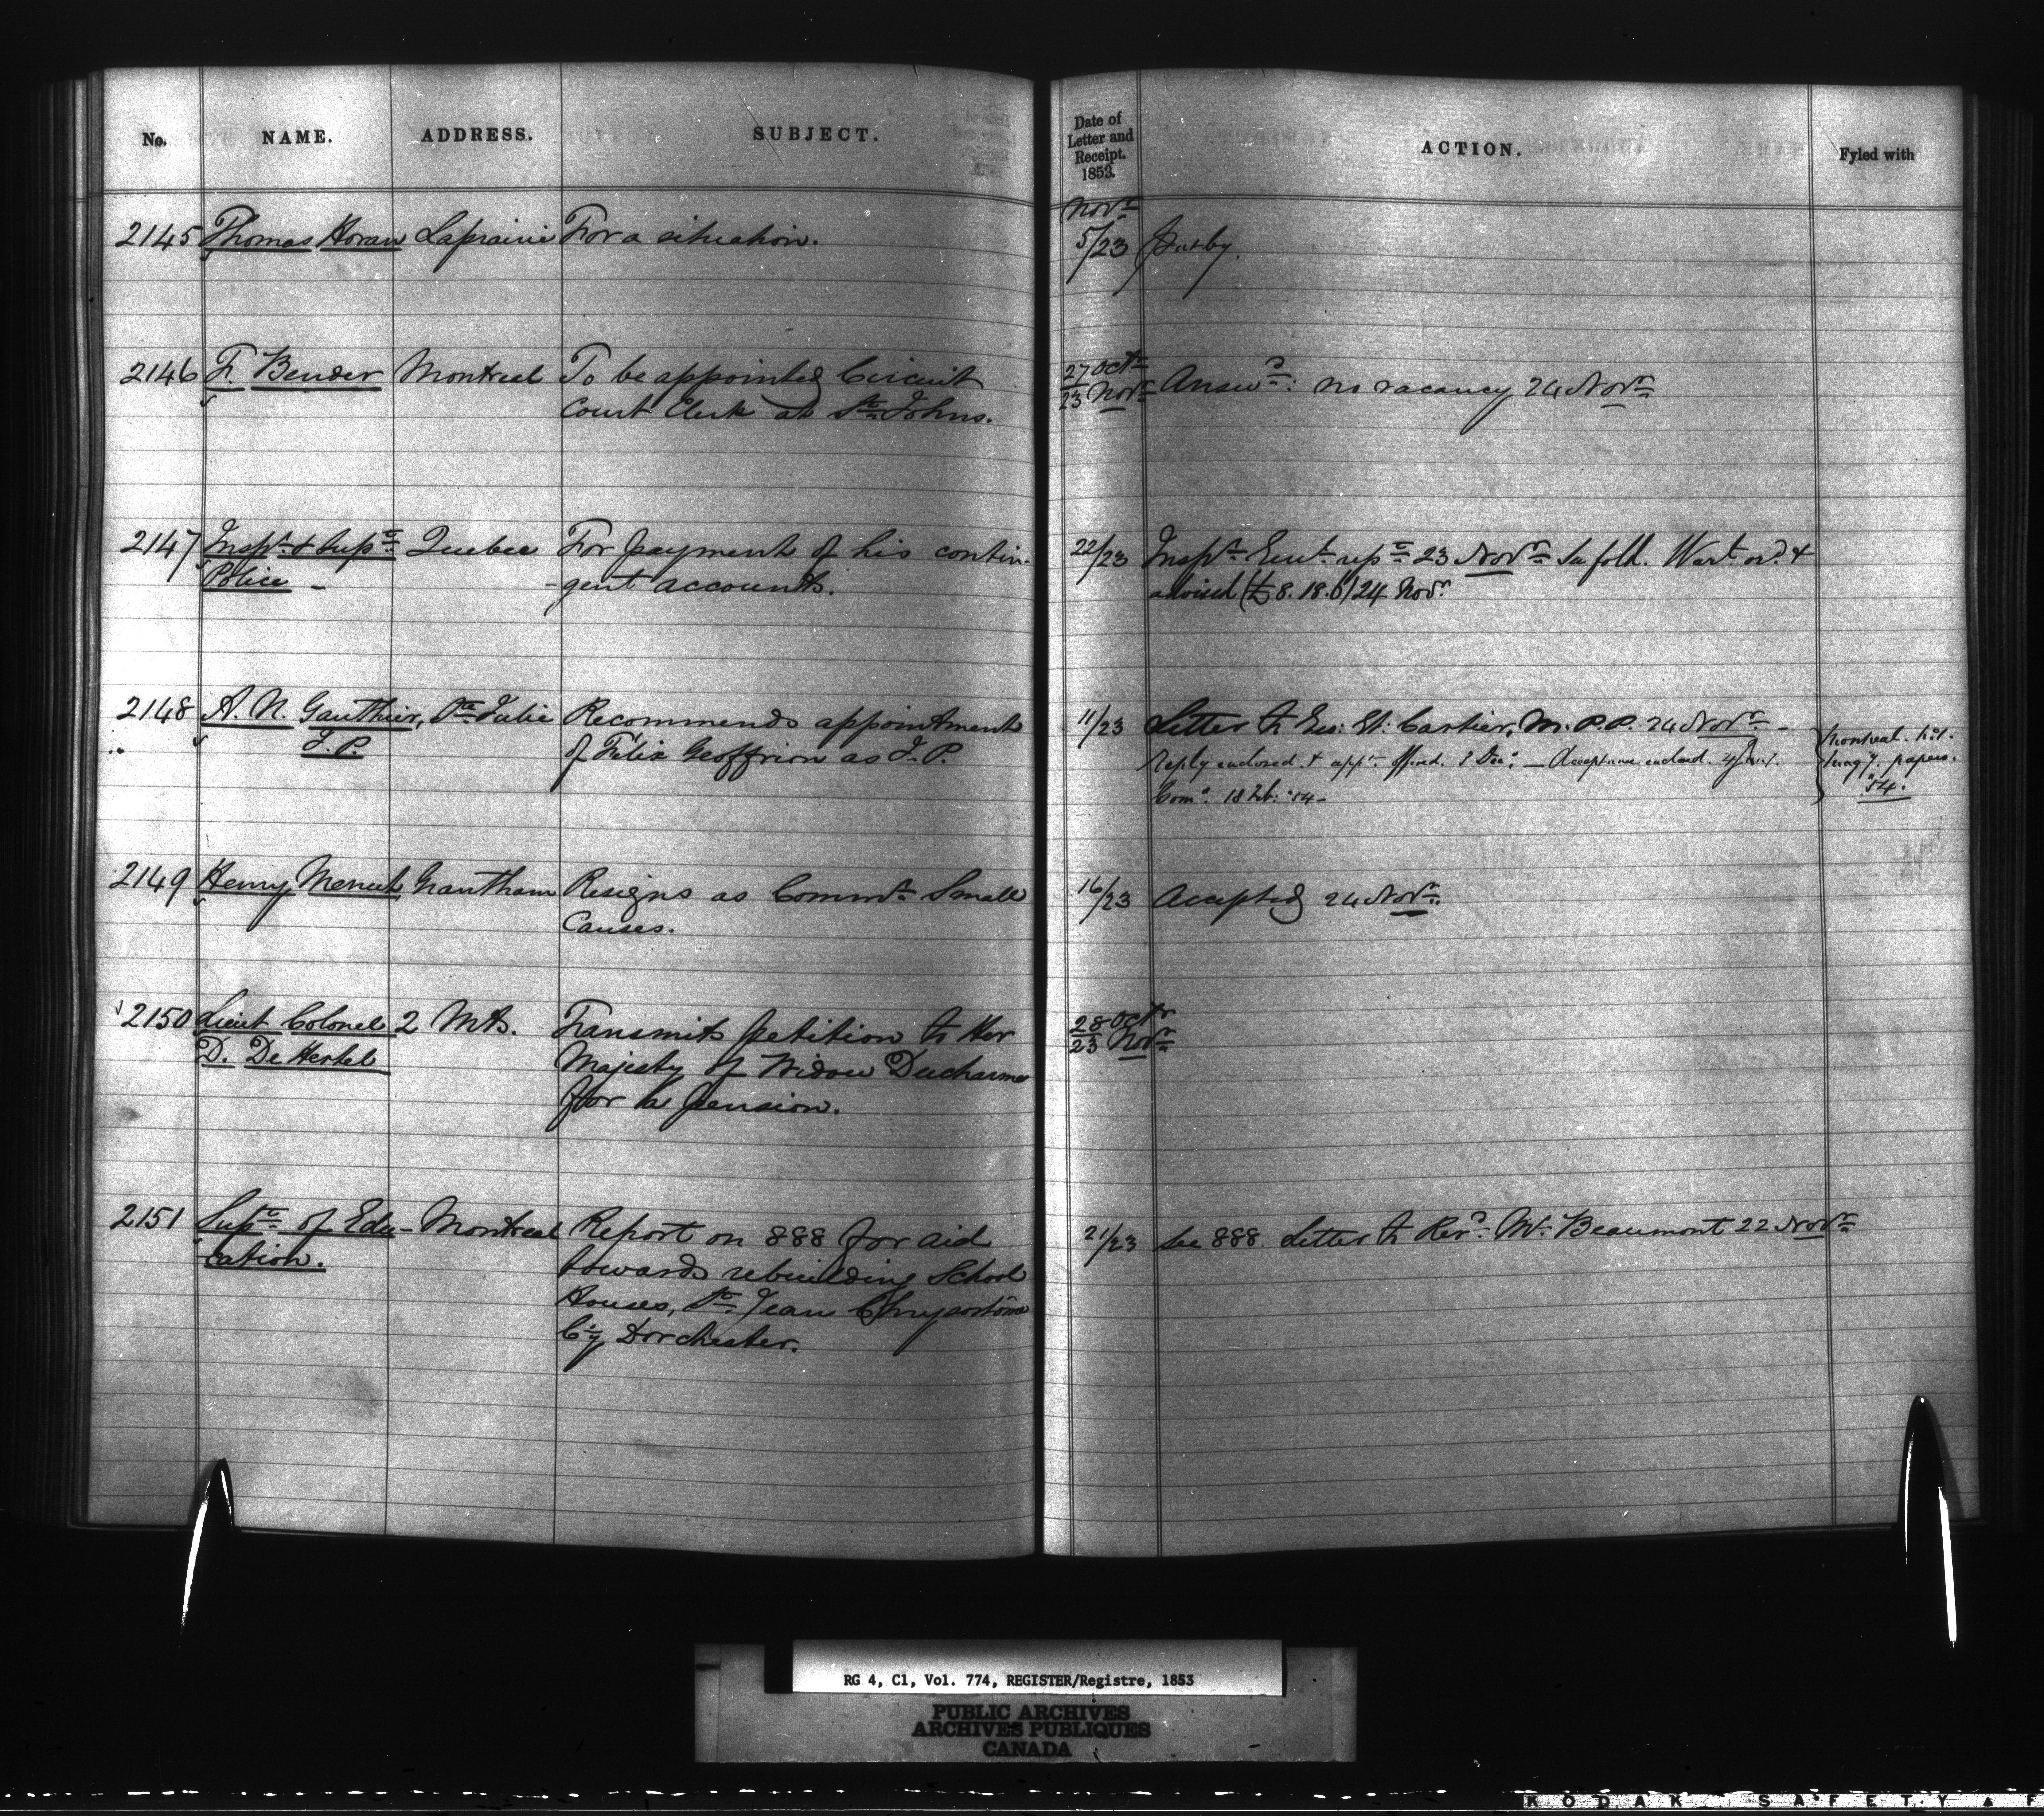 No. NAME. ADDRESS. SUBJECT. Date of Letter and Receipt. 1853. ACTION. Fyled with
Novr
2145 Thomas Horan Laprairie For a situation. 5/23 Put by.
2146 F. Bender Montreal To be appointed Circuit 27 Octr Answd: no vacancy 24 Novr
Court Clerk at St. Johns. 23 Novr
2147 Inspr & Supt Quebec For payment of his contin- 22/23 Inspr Genl rept 23 Novr In full. Wart ord &
Police - gent accounts. advised (£8.18.6) 24 Novr
2148 A. N. Gauthier, Ste Julie Recommends appointment 11/23 Letter to Geo: Et: Cartier, M.P.P. 24 Novr -
J.P. of Félix Geoffrion as J.P. Reply enclosed & appt offered. 8 Dec: - Acceptance enclosed. 4 Jany. Montreal
Com: 18 Feb: '54 - Magy. papers. '54.
2149 Henry Menut Grantham Resigns as Commr Small 16/23 Accepted 24 Novr
Causes.
2150 Lieut Colonel 2 Mts. Transmits petition to Her 28 Octr
D. De Hertel Majesty of Widow Ducharme 23 Novr
for a pension.
2151 Supt of Edu- Montreal Report on 888 for aid 21/23 See 888. Letter to Revd Mr Beaumont 22 Novr
cation. towards rebuilding School
Houses, St Jean Chrysostôme
Cy Dorchester.
RG 4, C1, Vol. 774, REGISTER/Registre, 1853
PUBLIC ARCHIVES
ARCHIVES PUBLIQUES
CANADA
KODAK SAFETY F